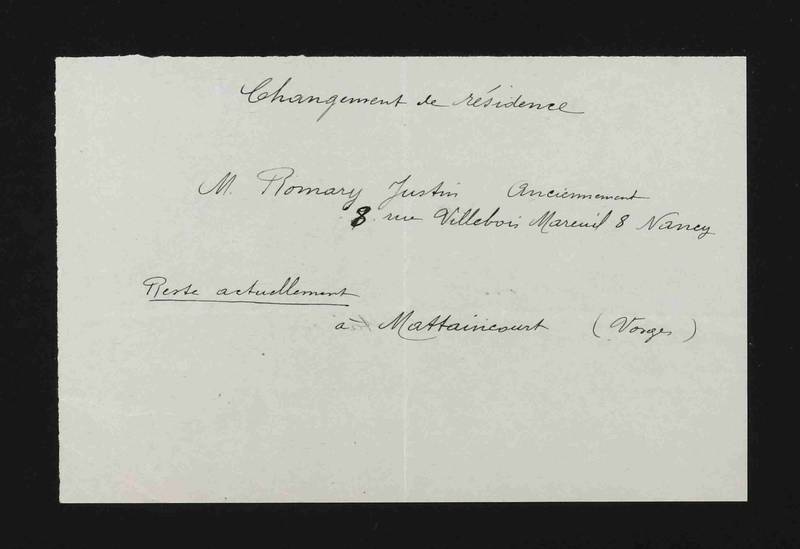 Changement de résidence
M. Romary Justin Anciennement
8 rue Villebois Mareuil 8 Nancy
Reste actuellement
à Mattaincourt (Vosges)